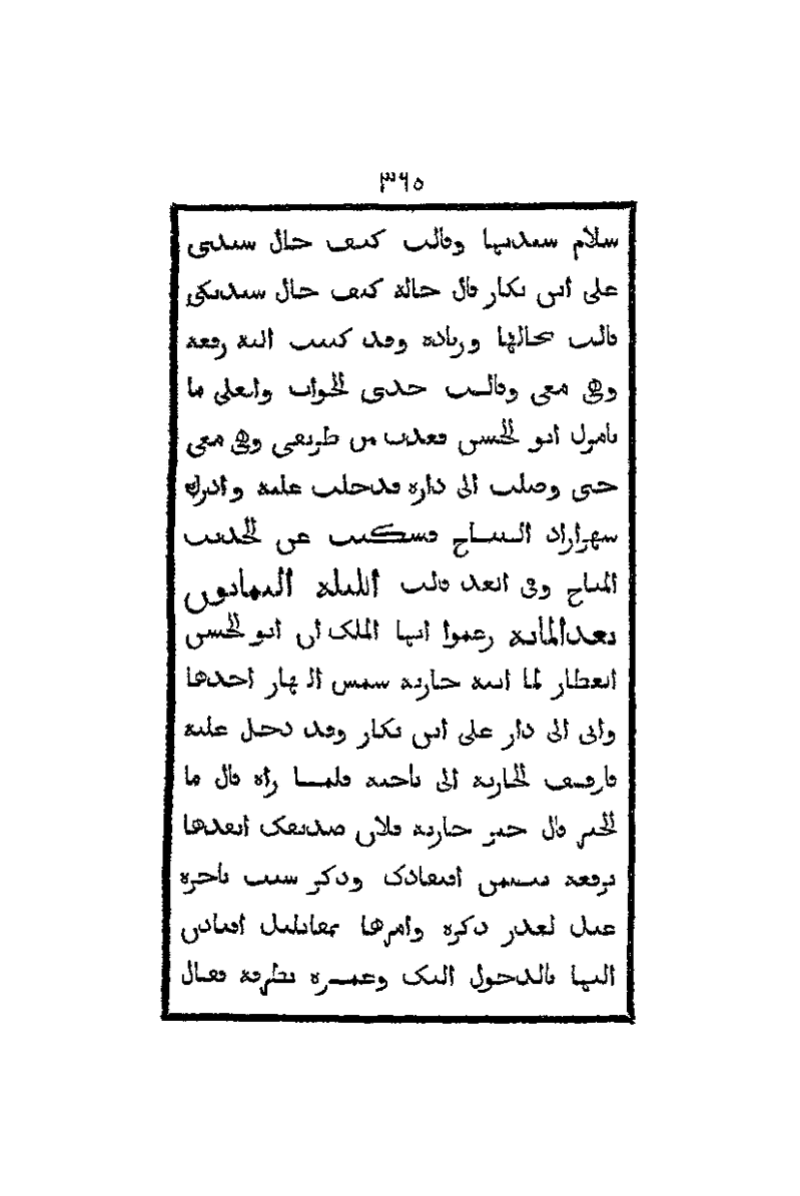 ٣٦٥
سلام سيدتها وقالت كيف حال سيدى
على ابن بكار قال حالة كيف حال سيدتكى
قالت بحالها وزياده وقد كتبت اليه رقعة
وهى معى وقالت خدى الجواب وافعلى ما
يامرك ابو الحسن فعدت من طريقى وهى معى
حتى وصلت الى داره فدخلت عليه وادرك
شهرازاد الصباح فسكتت عن الحديث
المباح وفى الغد قالت الليلة الثمانون
بعدالماية زعموا ايها الملك ان ابو الحسن
العطار لما اتته جارية شمس النهار اخدها
واتى الى دار على ابن بكار وقد دخل عليه
فاوقف الجارية الى ناحية فلما راه قال ما
الخبر قال خير جارية فلان صديقك انفدها
برقعة تتضمن افتقادك ودكر سبب تاخره
عنك لعدر دكره وامرها بمقابلتك افتادن
اليها بالدخول اليك وغمزه بطرفه فقال